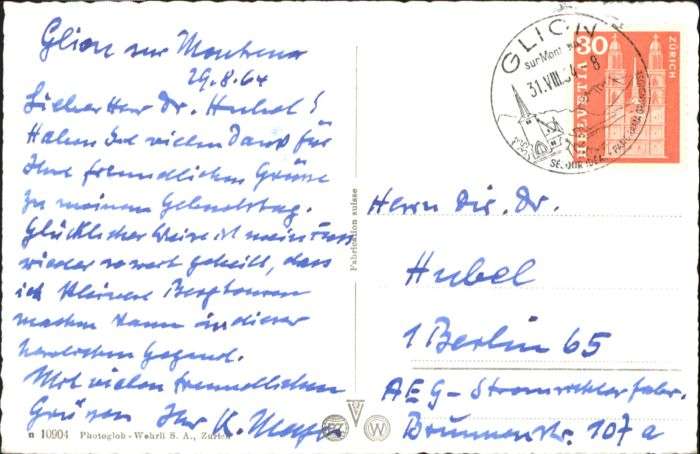 Glion sur Montreux
29.8.64
Lieber Herr Dr. Hubel!
Haben Sie vielen Dank für
Ihre freundlichen Grüsse
zu meinem Geburtstag.
Glücklicher Weise ist mein Fuss
wieder so weit geheilt, dass
ich kleinere Bergtouren
machen kann in dieser
herrlichen Gegend.
Mit vielen freundlichen
Grüssen Ihr K.
n 10904 Photoglob-Wehrli S. A., Zürich
Fabrication suisse
GLION
sur Montreux
31.VIII.64 8
SÉJOUR IDÉAL PANORAMA GRANDIOSE
30
HELVETIA
ZÜRICH
Herrn Dir. Dr.
Hubel
1 Berlin 65
AEG-Stromrichterfabr.
Brunnenstr. 107a
W